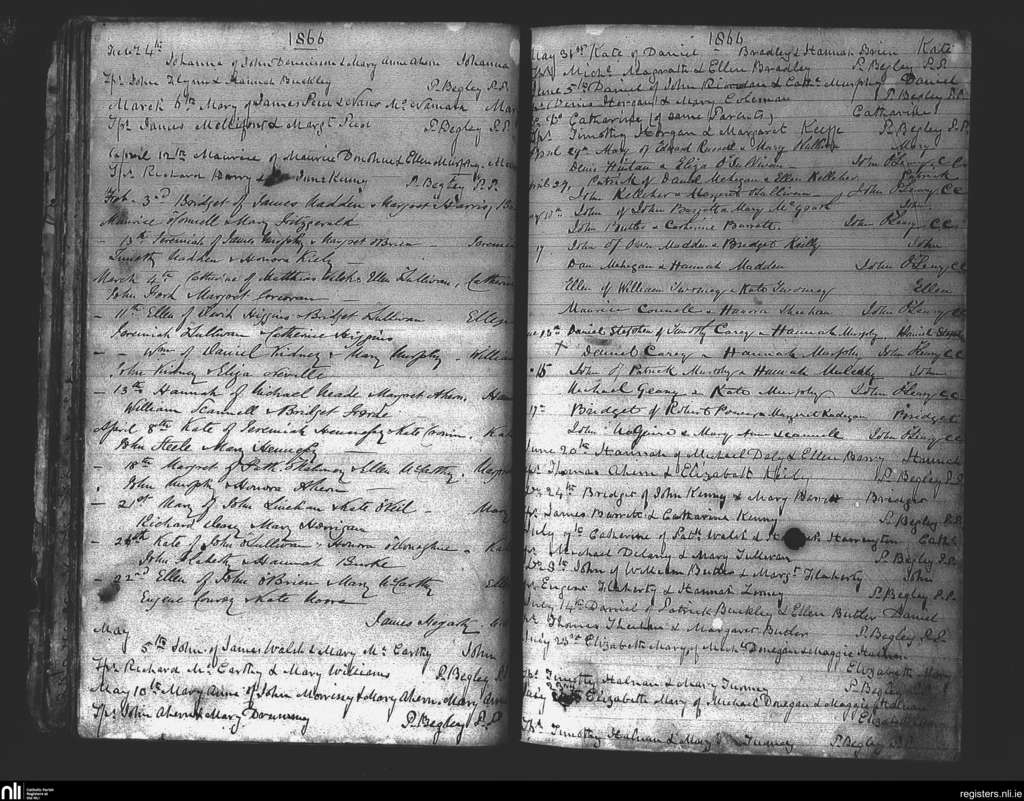 1866
4th
Johanna of John Dennison & Mary Anne Ahern Johanna
Sps John Flynn & Hannah Buckley P. Begley P.P.
March 6th Mary of James Peel & Mc Namara Mar
Sps James & Margt P. Begley P.P.
April 12th Maurice of Maurice Donohue & Ellen Murphy
Sps Richard Barry & Jane Kenny P. Begley P.P.
Feb. 3rd Bridget of James Madden & Margaret
Maurice O'Connell Mary Fitzgerald
13th Jeremiah of James Murphy & Margaret O'Brien Jeremia
Timothy Madden & Honora
March 4th Catherine of Matthias Welsh & Ellen Sullivan, Catherin
John Margaret Corcoran
11th Ellen of David Higgins & Bridget Sullivan Ellen
Jeremiah Sullivan Catherine Higgins
Wm of Daniel Kidney & Mary Murphy William
John Kidney & Eliza
13th Hannah of Michael Meade Margaret Ahern, Han
William Scannell & Bridget
April 8th Kate of Jeremiah Hennessy Kate Cronin. Kat
John Steele Mary Hennessy
18th Margaret of Patk & Ellen McCarthy
John Murphy & Honora Ahern
21st Mary of John & Kate O'Neil Mary
Richard Mary Horrigan
24th Kate of John Sullivan & Honora O'Donoghue Kat
John Flaherty & Hannah Burke
22nd Ellen of John O'Brien Mary McCarthy
Eugene Conroy Kate
James Hegarty
May
5th John of James Walsh & Mary Mc Carthy John
Sps Richard Mc Carthy & Mary Williams P. Begley P.P.
May 10th Mary Anne of John Morrissey & Mary Ahern Mary Ann
Sps John Ahern & Mary Downney P. Begley P.P.
1866
May 31st Kate of Daniel Bradley & Hannah Brien Kate
Sps Michl Magrath & Ellen Bradley P. Begley P.P.
June 5th Daniel of John Riordan & Cathe Murphy Daniel
Denis Horgan & Mary Coleman P. Begley P.P.
Do Do Catharine (of same Parents) Catharine
Sps Timothy Horgan & Margaret Keeffe P. Begley P.P.
April 29th Mary of Edward Russell & Mary Mary
Denis & Eliza John O'Leary C.C.
April 29, Patrick of Daniel Mehigan & Ellen Kelleher Patrick
John Kelleher & Margaret Sullivan John O'Leary CC
10th John of John & Mary McGrath John
John Butler & Catherine Barrett John O'Leary CC
17 John of Owen Madden & Bridget Reilly John
Dan Mehigan & Hannah Madden John O'Leary CC
Ellen of William Twomey & Kate Twomey Ellen
Maurice Connell & Hanora Sheehan John O'Leary CC
June 13th Daniel Stephen of Timothy Carey & Hannah Murphy Daniel Stephen
Daniel Carey & Hannah Murphy John O'Leary CC
15 John of Patrick Murphy & Hannah Mulcahy John
Michael Geany & Kate Murphy John O'Leary CC
17th Bridget of Robert Power & Margaret Bridget
John Maguire & Mary Anne Scannell John O'Leary CC
June 20th Hannah of Michael Daly & Ellen Barry Hannah
Sps Thomas Ahern & Elizabeth Reidy P. Begley P.P.
Do 24th Bridget of John Kenny & Mary Barrett Bridget
Sps James Barrett & Catharine Kenny P. Begley P.P.
July 7th Catherine of Patk Walsh & Harrington Cath
Sps Michael Delany & Mary Sullivan P. Begley P.P.
Do 8th John of William Butler & Margt Flaherty John
Sps Eugene Flaherty & Hannah Looney P. Begley P.P.
July 14th Daniel of Patrick Buckley & Ellen Butler Daniel
Sps Thomas & Margaret Butler P. Begley P.P.
July 23rd Elizabeth Mary of Michl Donegan & Maggie Halnan
Elizabeth Mary
Sps Timothy Halnan & Mary Turney P. Begley P.P.
July Elizabeth Mary of Michael Donegan & Maggie Halnan
Elizabeth
Sps Timothy Halnan & Mary Turney P. Begley P.P.
nli
Catholic Parish
Registers at
the NLI
registers.nli.ie